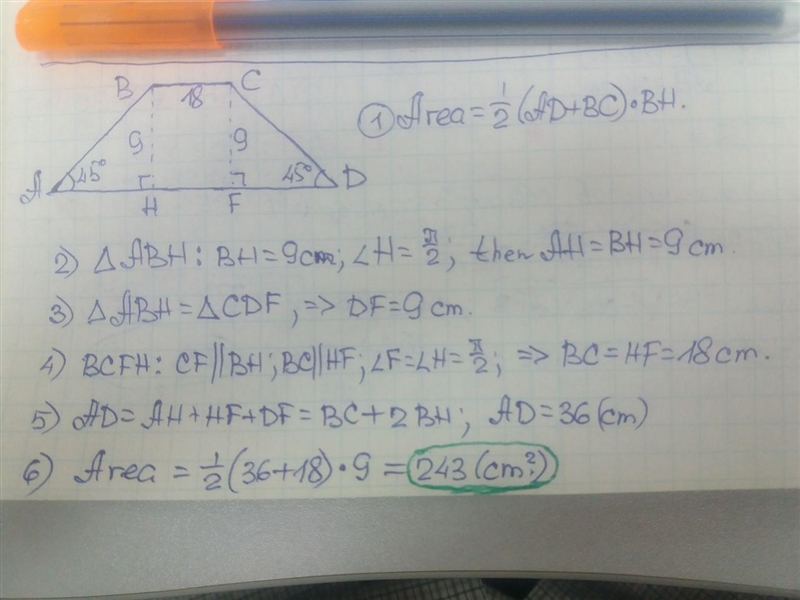 B C
18
① Area = 1/2 (AD+BC)·BH.
9 9
A 45° 45° D
H F
2) △ABH: BH=9cm; ∠H=π/2; then AH=BH=9cm.
3) △ABH=△CDF, => DF=9cm.
4) BCFH: CF||BH; BC||HF; ∠F=∠H=π/2; => BC=HF=18cm.
5) AD=AH+HF+DF=BC+2BH; AD=36(cm)
6) Area = 1/2 (36+18)·9 = 243(cm²)